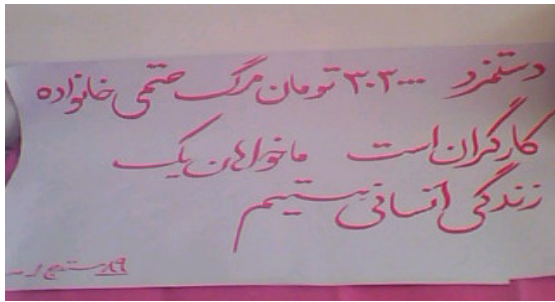 دستمزد ۳۰۳۰۰۰ تومان مرگ حتمی خانواده
کارگران است ما خواهان یک
زندگی انسانی هستیم
۸۹